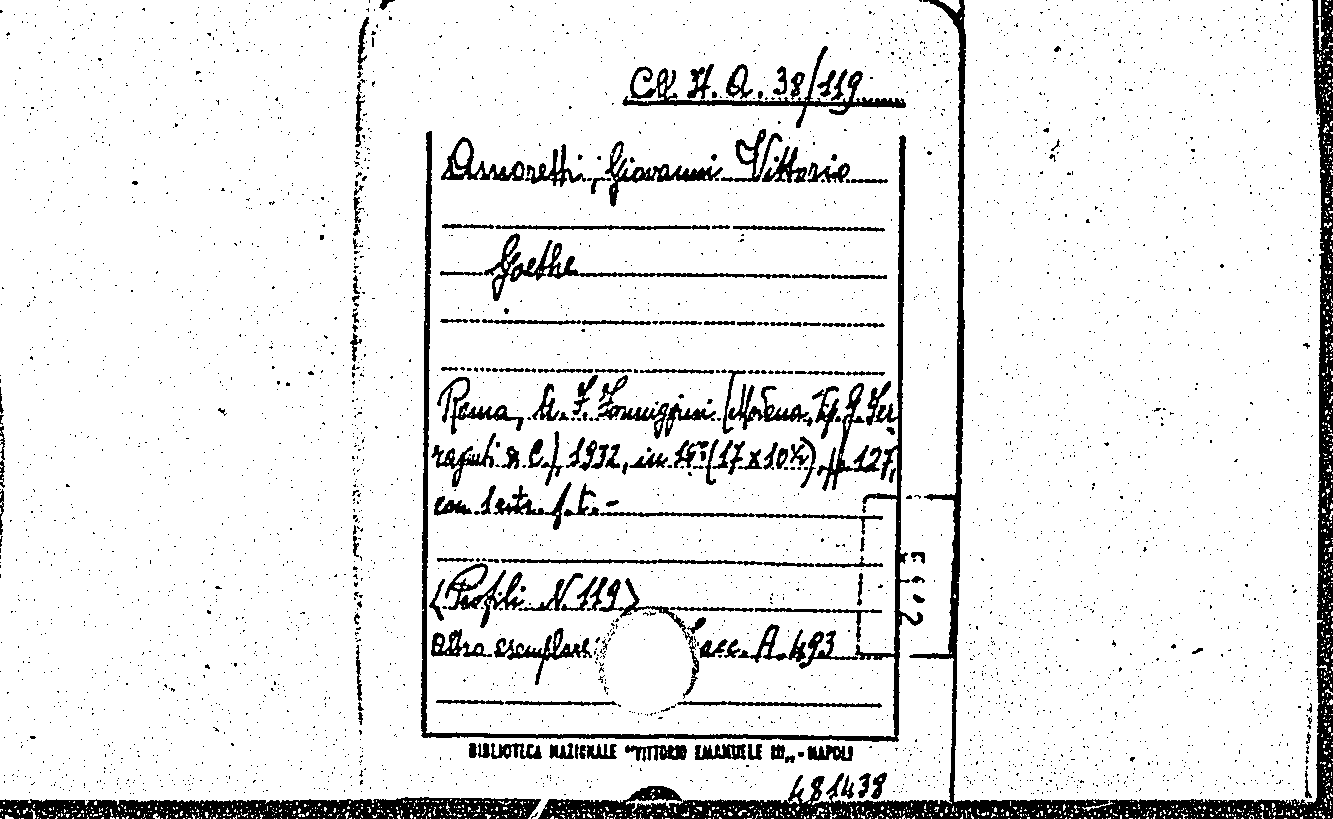 Coll. It. A. 38/119
Amoretti, Giovanni Vittorio
Goethe
Roma, A. F. Formiggini (Modena, Tip. G. Fer
raguti & C.), 1932, in 16° (17 x 10½), pp. 127,
con 1 ritr. f. t. -
(Profili N. 119)
Altro esemplare: Sacc. A. 493
BIBLIOTECA NAZIONALE "VITTORIO EMANUELE III„ - NAPOLI
481438